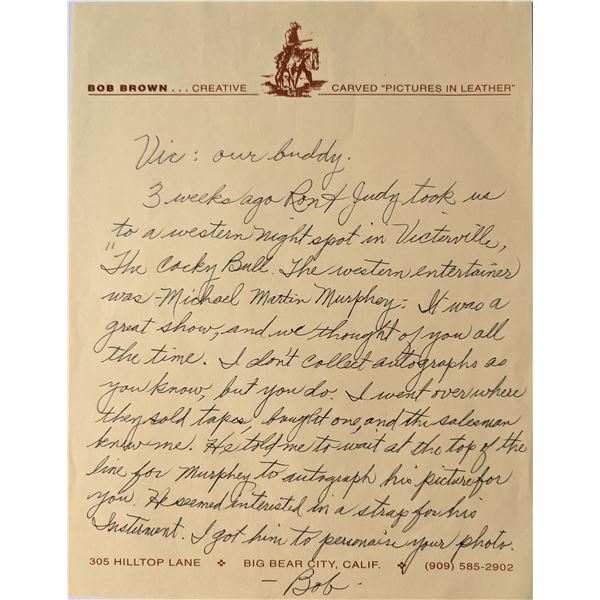 BOB BROWN . . . CREATIVE CARVED "PICTURES IN LEATHER"
Vic: our buddy.
3 weeks ago Ron & Judy took us
to a western night spot in Victerville,
"The Cocky Bull. The western entertainer
was - Michael Martin Murphey: It was a
great show, and we thought of you all
the time. I don't collect autographs as
you know, but you do. I went over where
they sold tapes, bought one, and the salesman
knew me. He told me to wait at the top of the
line for Murphey to autograph his picture for
you. He seemed interested in a strap for his
Insterment. I got him to personaise your photo.
305 HILLTOP LANE ❖ BIG BEAR CITY, CALIF. ❖ (909) 585-2902
- Bob -